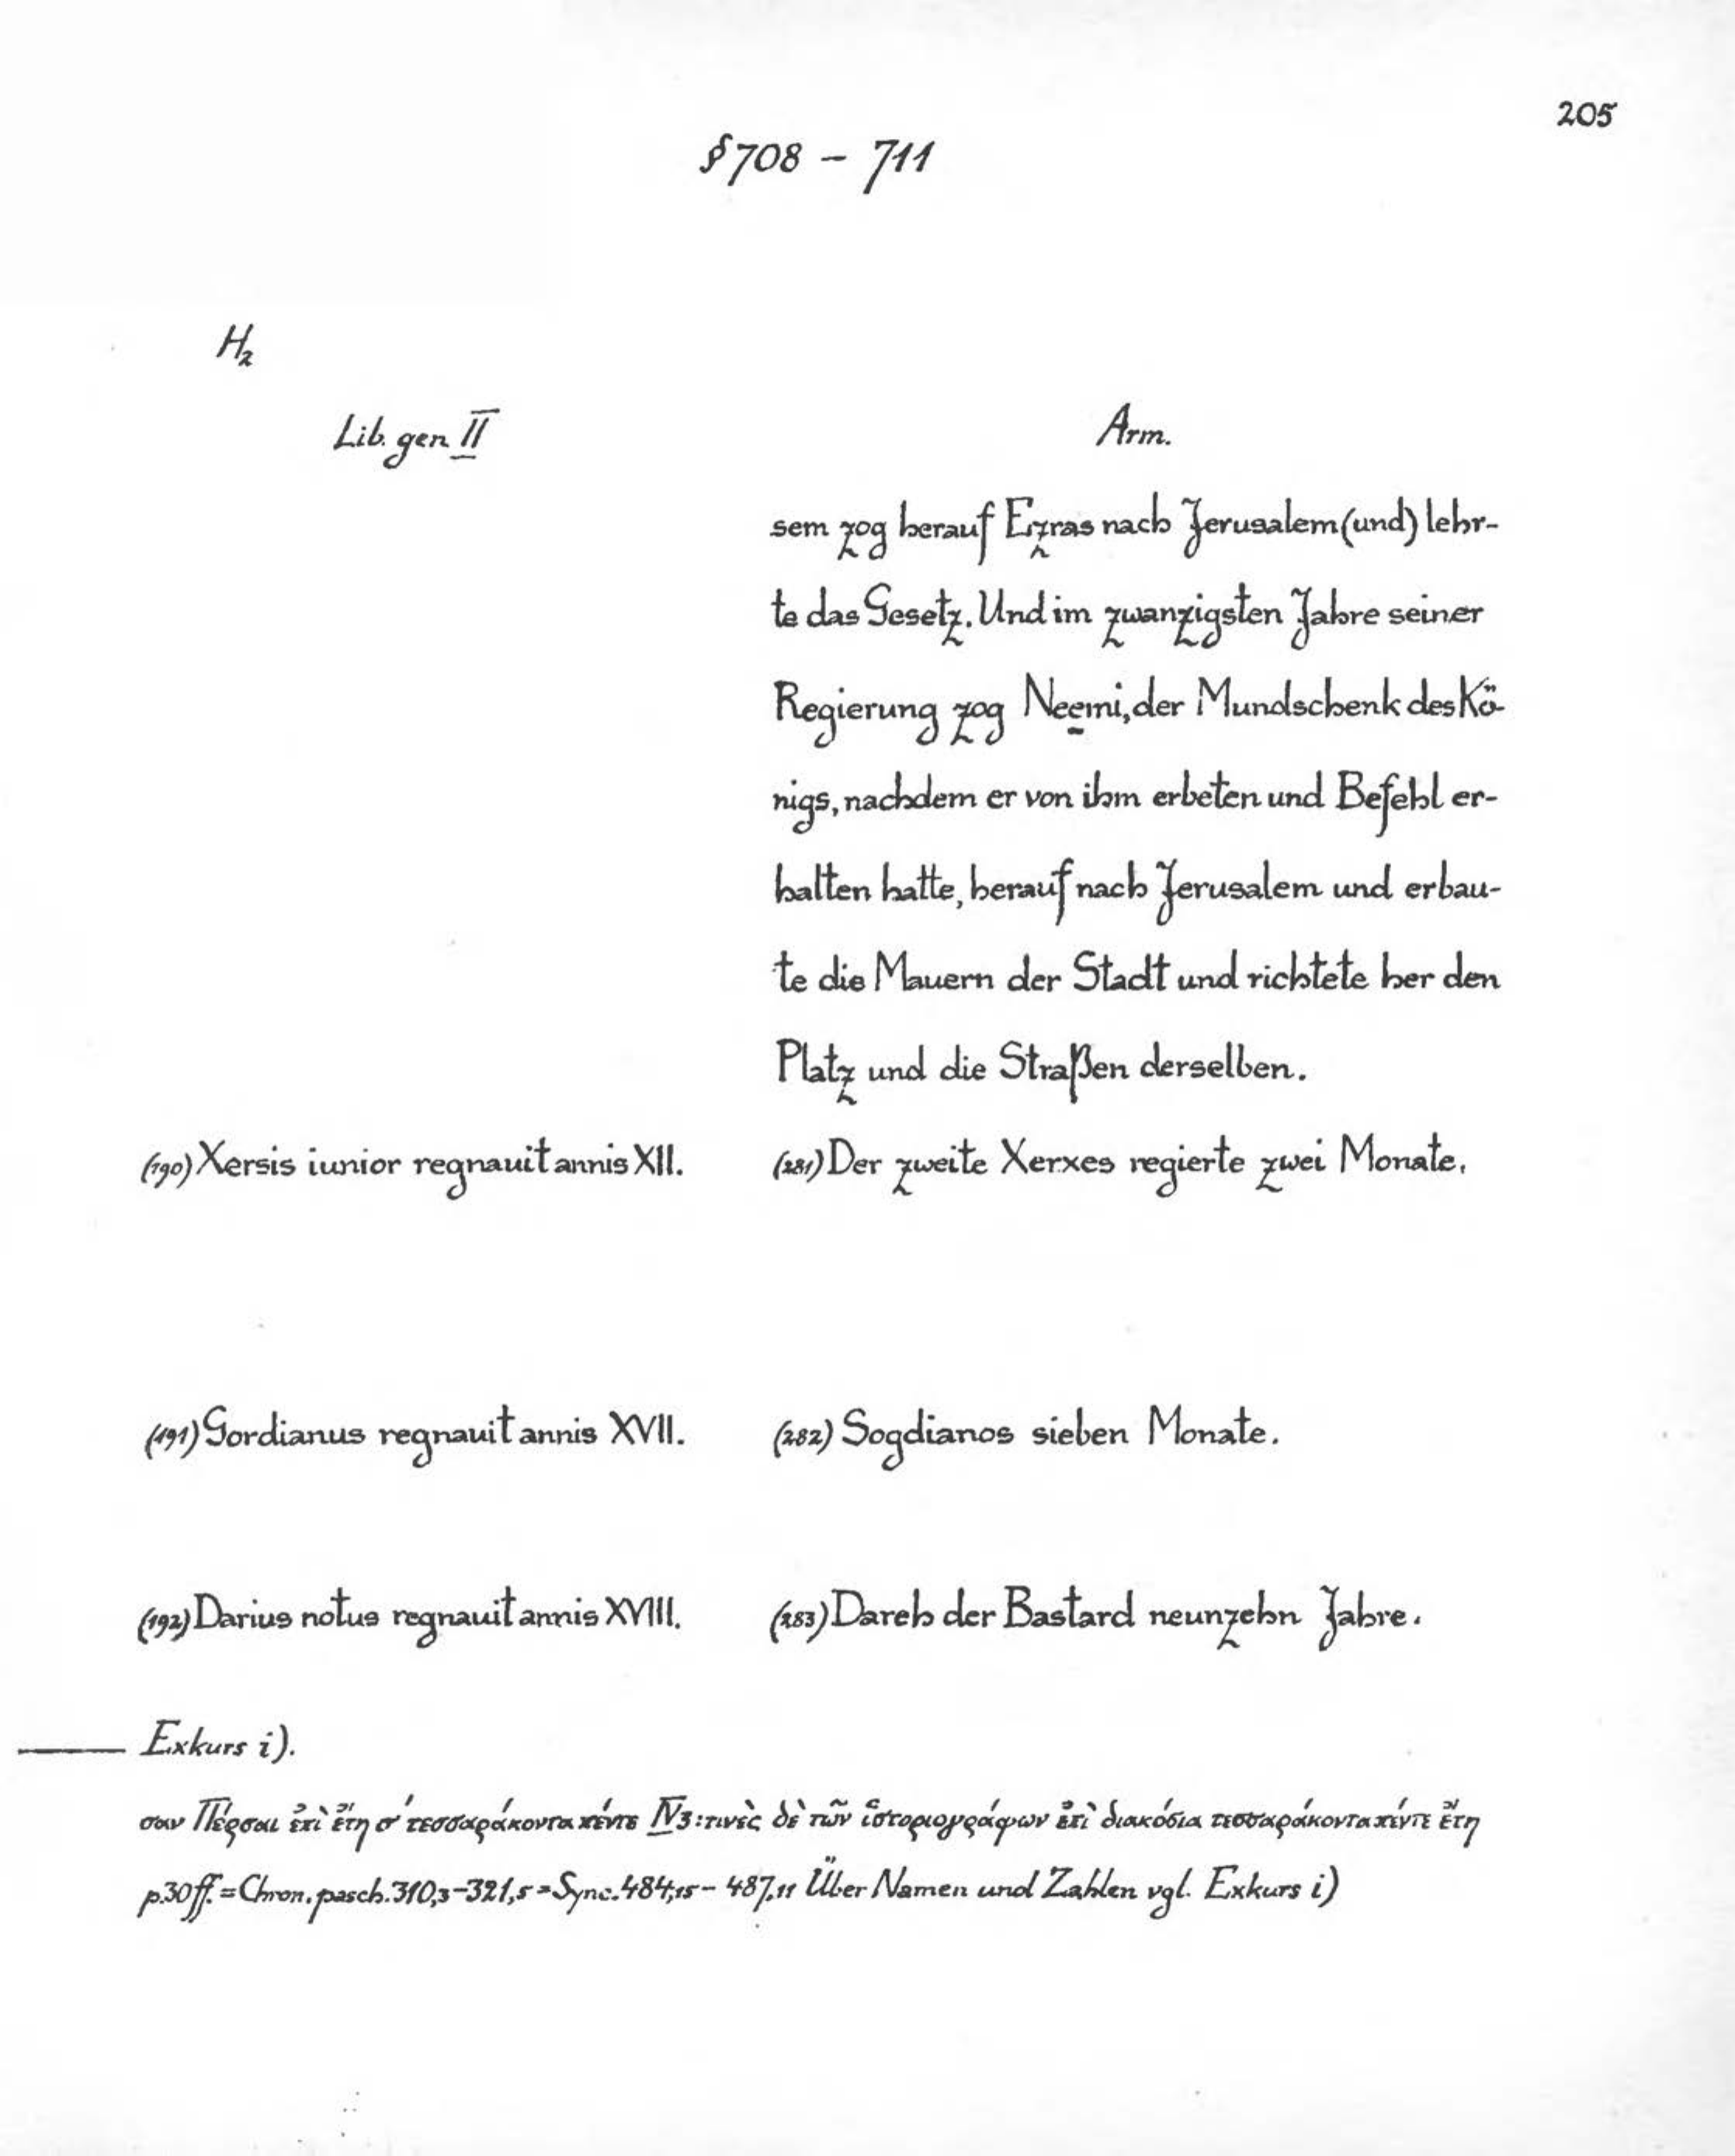 205
§ 708 – 711
H₂
Lib. gen. II
Arm.
sem zog herauf Ezras nach Jerusalem (und) lehr-
te das Gesetz. Und im zwanzigsten Jahre seiner
Regierung zog Neemi, der Mundschenk des Kö-
nigs, nachdem er von ihm erbeten und Befehl er-
halten hatte, herauf nach Jerusalem und erbau-
te die Mauern der Stadt und richtete her den
Platz und die Straßen derselben.
(190) Xersis iunior regnauit annis XII.
(281) Der zweite Xerxes regierte zwei Monate.
(191) Gordianus regnauit annis XVII.
(282) Sogdianos sieben Monate.
(192) Darius notus regnauit annis XVIII.
(283) Dareh der Bastard neunzehn Jahre.
Exkurs i).
σαν Πέρσαι ἐπὶ ἔτη σ' τεσσαράκοντα πέντε IV3: τινὲς δὲ τῶν ἱστοριογράφων ἐπὶ διακόσια τεσσαράκοντα πέντε ἔτη
p.30ff. = Chron. pasch. 310,3–321,5 = Sync. 484,15 – 487,11 Über Namen und Zahlen vgl. Exkurs i)